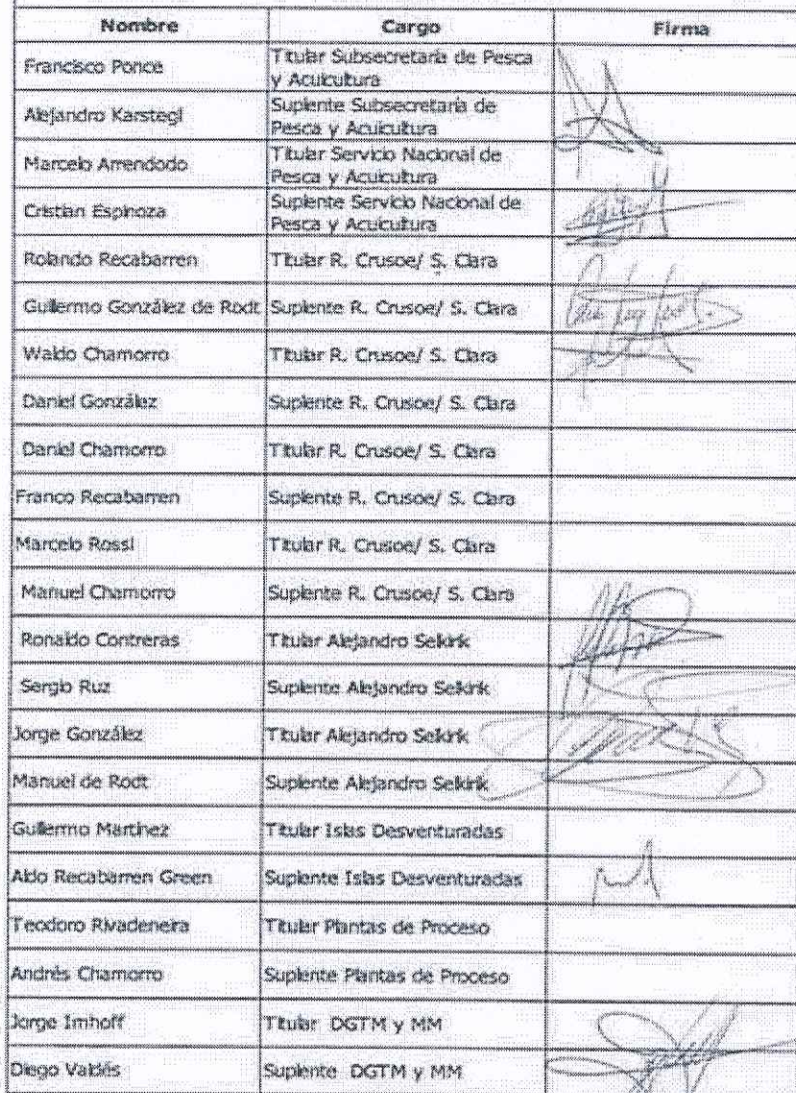 Nombre Cargo Firma
Francisco Ponce Titular Subsecretaría de Pesca
y Acuicultura
Alejandro Karstegl Suplente Subsecretaría de
Pesca y Acuicultura
Marcelo Arrendodo Titular Servicio Nacional de
Pesca y Acuicultura
Cristian Espinoza Suplente Servicio Nacional de
Pesca y Acuicultura
Rolando Recabarren Titular R. Crusoe/ S. Clara
Guillermo González de Rodt Suplente R. Crusoe/ S. Clara
Waldo Chamorro Titular R. Crusoe/ S. Clara
Daniel González Suplente R. Crusoe/ S. Clara
Daniel Chamorro Titular R. Crusoe/ S. Clara
Franco Recabarren Suplente R. Crusoe/ S. Clara
Marcelo Rossi Titular R. Crusoe/ S. Clara
Manuel Chamorro Suplente R. Crusoe/ S. Clara
Ronaldo Contreras Titular Alejandro Selkirk
Sergio Ruz Suplente Alejandro Selkirk
Jorge González Titular Alejandro Selkirk
Manuel de Rodt Suplente Alejandro Selkirk
Guillermo Martínez Titular Islas Desventuradas
Aldo Recabarren Green Suplente Islas Desventuradas
Teodoro Rivadeneira Titular Plantas de Proceso
Andrés Chamorro Suplente Plantas de Proceso
Jorge Imhoff Titular DGTM y MM
Diego Valdés Suplente DGTM y MM